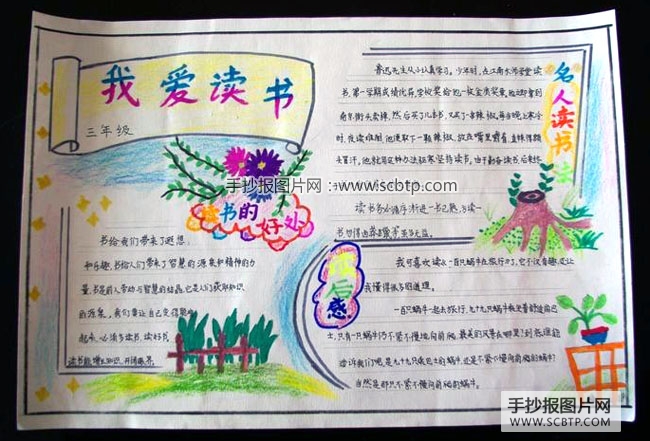 我爱读书
三年级
手抄报图片网：www.scbtp.com
读书的好处
书给我们带来了遐想
和乐趣，书给人们带来了智慧的源泉和精神的力
量。书是前人劳动与智慧的结晶，它是人们获取知识
的源泉。我们要让自己变得聪
起来，必须多读书，读好书。
读书能增长知识，开阔眼界
名人读书
鲁迅先生从小认真学习。少年时，在江南水师学堂读
书，第一学期成绩优异，学校奖给他一枚金质奖章。他立即拿到
南京鼓楼街头卖掉，然后买了几本书，又买了一串辣椒。每当晚上寒冷
时，夜读难耐，他便取下一颗辣椒，放在嘴里嚼着，直辣得额
头冒汗。他就用这种办法驱寒坚持读书。由于刻苦读书，后来终
读书务必循序渐进；一书已熟，方读一
后感
我可喜欢读
我懂得很多的道理。
一百只蜗牛一起去旅行，九十九只蜗牛
士，只有一只蜗牛仍不紧不慢地向前爬。最美的风景在哪里？到底谁能
告诉我们呢，是九十九只乘巴士的蜗牛，还是不紧不慢向前爬的蜗牛？
当然是那只不紧不慢向前爬的蜗牛。
手抄报图片网
WWW.SCBTP.COM